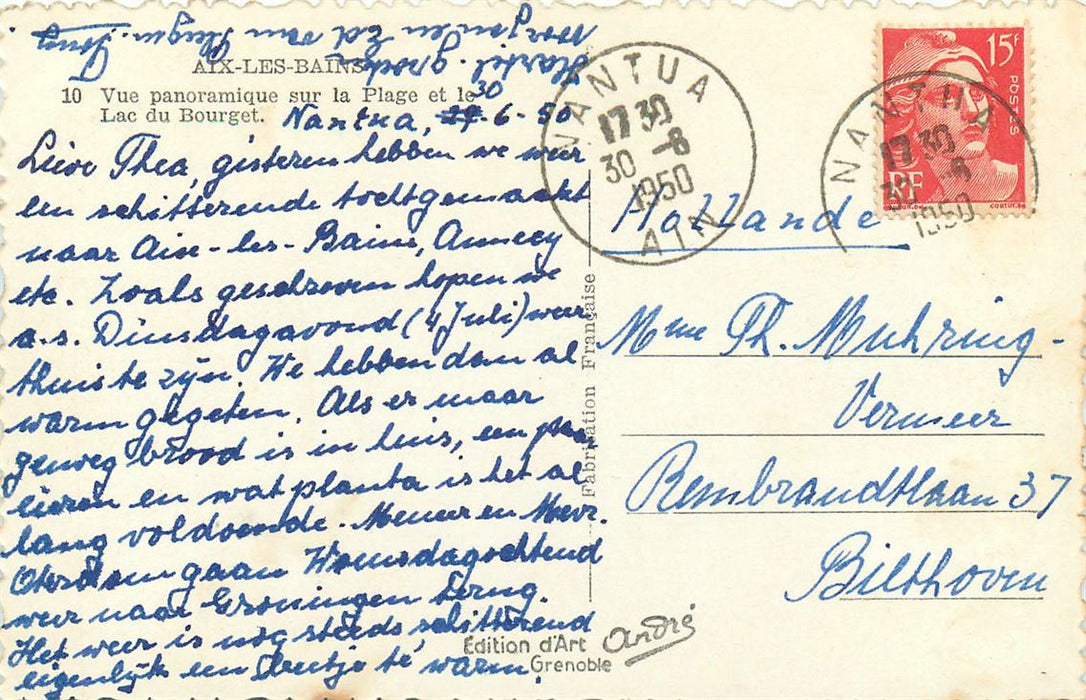 AIX-LES-BAINS
10 Vue panoramique sur la Plage et le
Lac du Bourget.
Nantua, 30 6-50
Lieve Thea, gisteren hebben we weer
een schitterende tocht gemaakt
naar Aise-les-Bains, Annecy
etc. Zoals geschreven hopen we
a.s. Dinsdagavond (4 Juli) weer
thuis te zijn. We hebben dan al
warm gegeten. Als er maar
genoeg brood is in huis, een
eieren en wat planta is het al
lang voldoende. Meneer en Mevr.
Oterdoom gaan Woensdagochtend
weer naar Groningen terug.
Het weer is nog steeds schitterend
eigenlijk een beetje te warm.
Hartel. groeten
Fabrication Française
Edition d'Art
Grenoble
André
NANTUA
17 30
30 -6
1950
AIN
NANTUA
17 30
30 -6
1950
15F
POSTES
RF
Hollande
Mme Th. Muhring-
Vermeer
Rembrandtlaan 37
Bilthoven